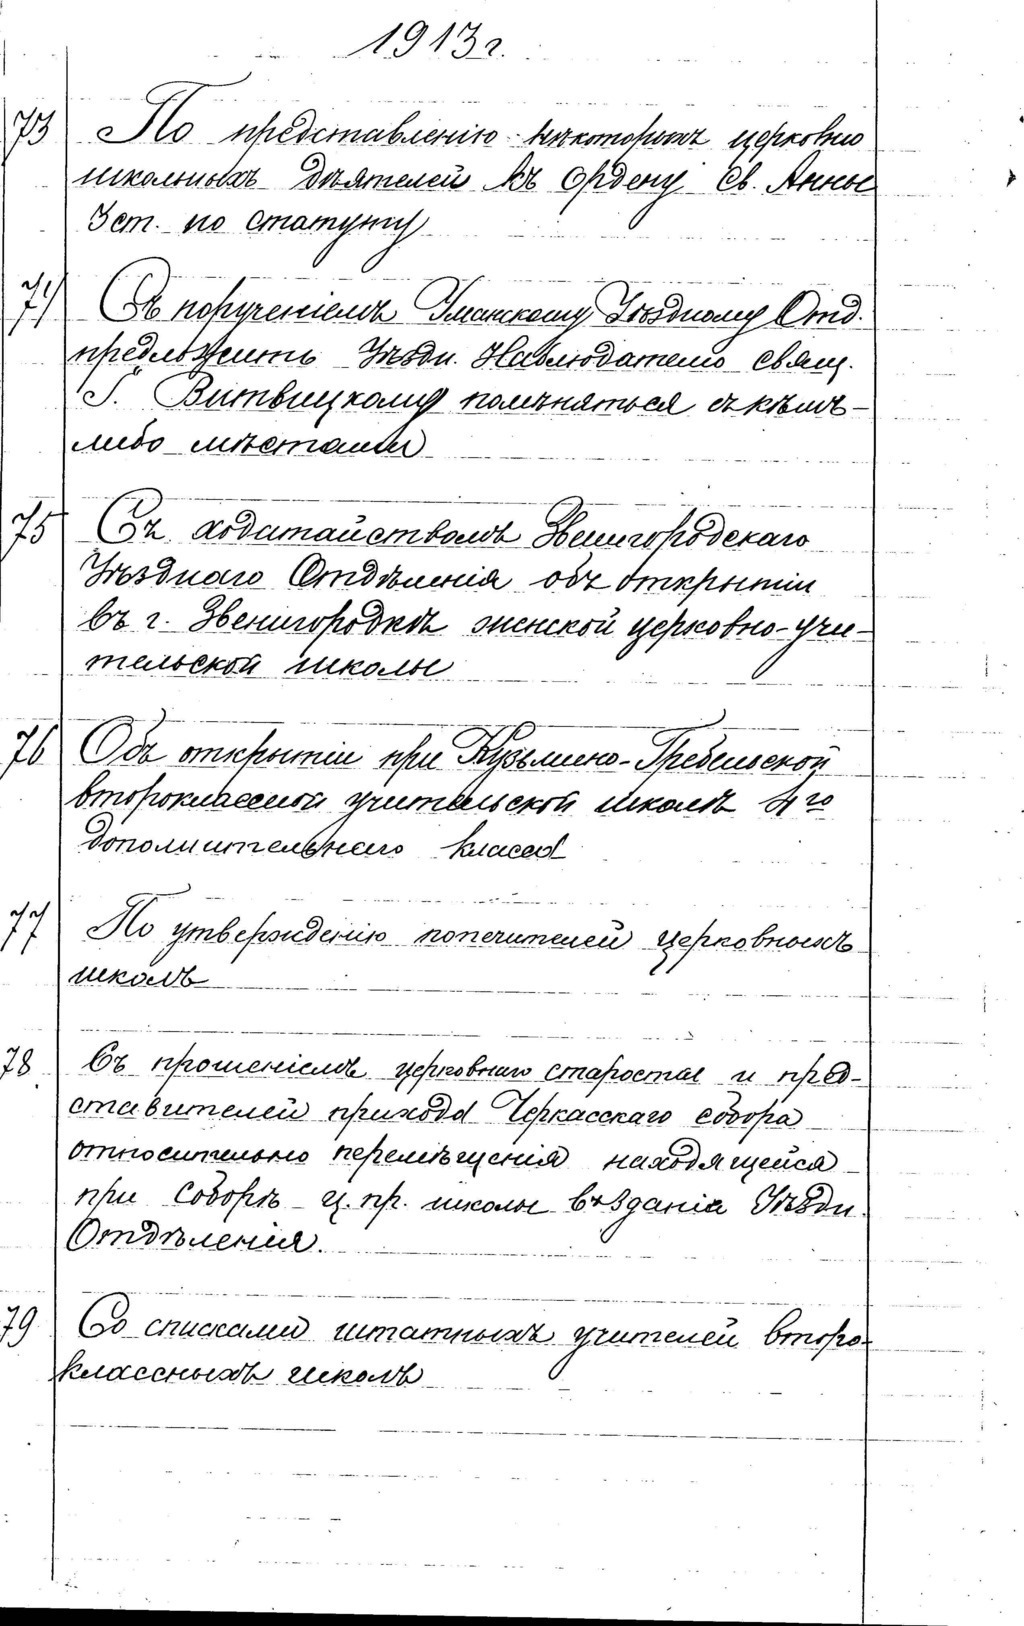 1913 г.
73 По представленію нѣкоторыхъ церковно
школьныхъ дѣятелей къ ордену Св. Анны
3 ст. по статуту
74 Съ порученіемъ Уманскому Уѣздному Отд.
предложить Уѣздн. Наблюдателю свящ.
Г. Витвицкому помѣняться съ кѣмъ-
либо мѣстами
75 Съ ходатайствомъ Звенигородскаго
Уѣзднаго Отдѣленія объ открытіи
въ г. Звенигородкѣ женской церковно-учи-
тельской школы
76 Объ открытіи при Кузьмино-Гребельской
второклассной учительской школѣ 4го
дополнительнаго класса
77 По утвержденію попечителей церковныхъ
школъ
78 Съ прошеніемъ церковнаго старосты и пред-
ставителей прихода Черкасскаго собора
относительно перемѣщенія находящейся
при Соборѣ ц. пр. школы въ зданія Уѣздн.
Отдѣленія.
79 Со списками штатныхъ учителей второ-
классныхъ школъ